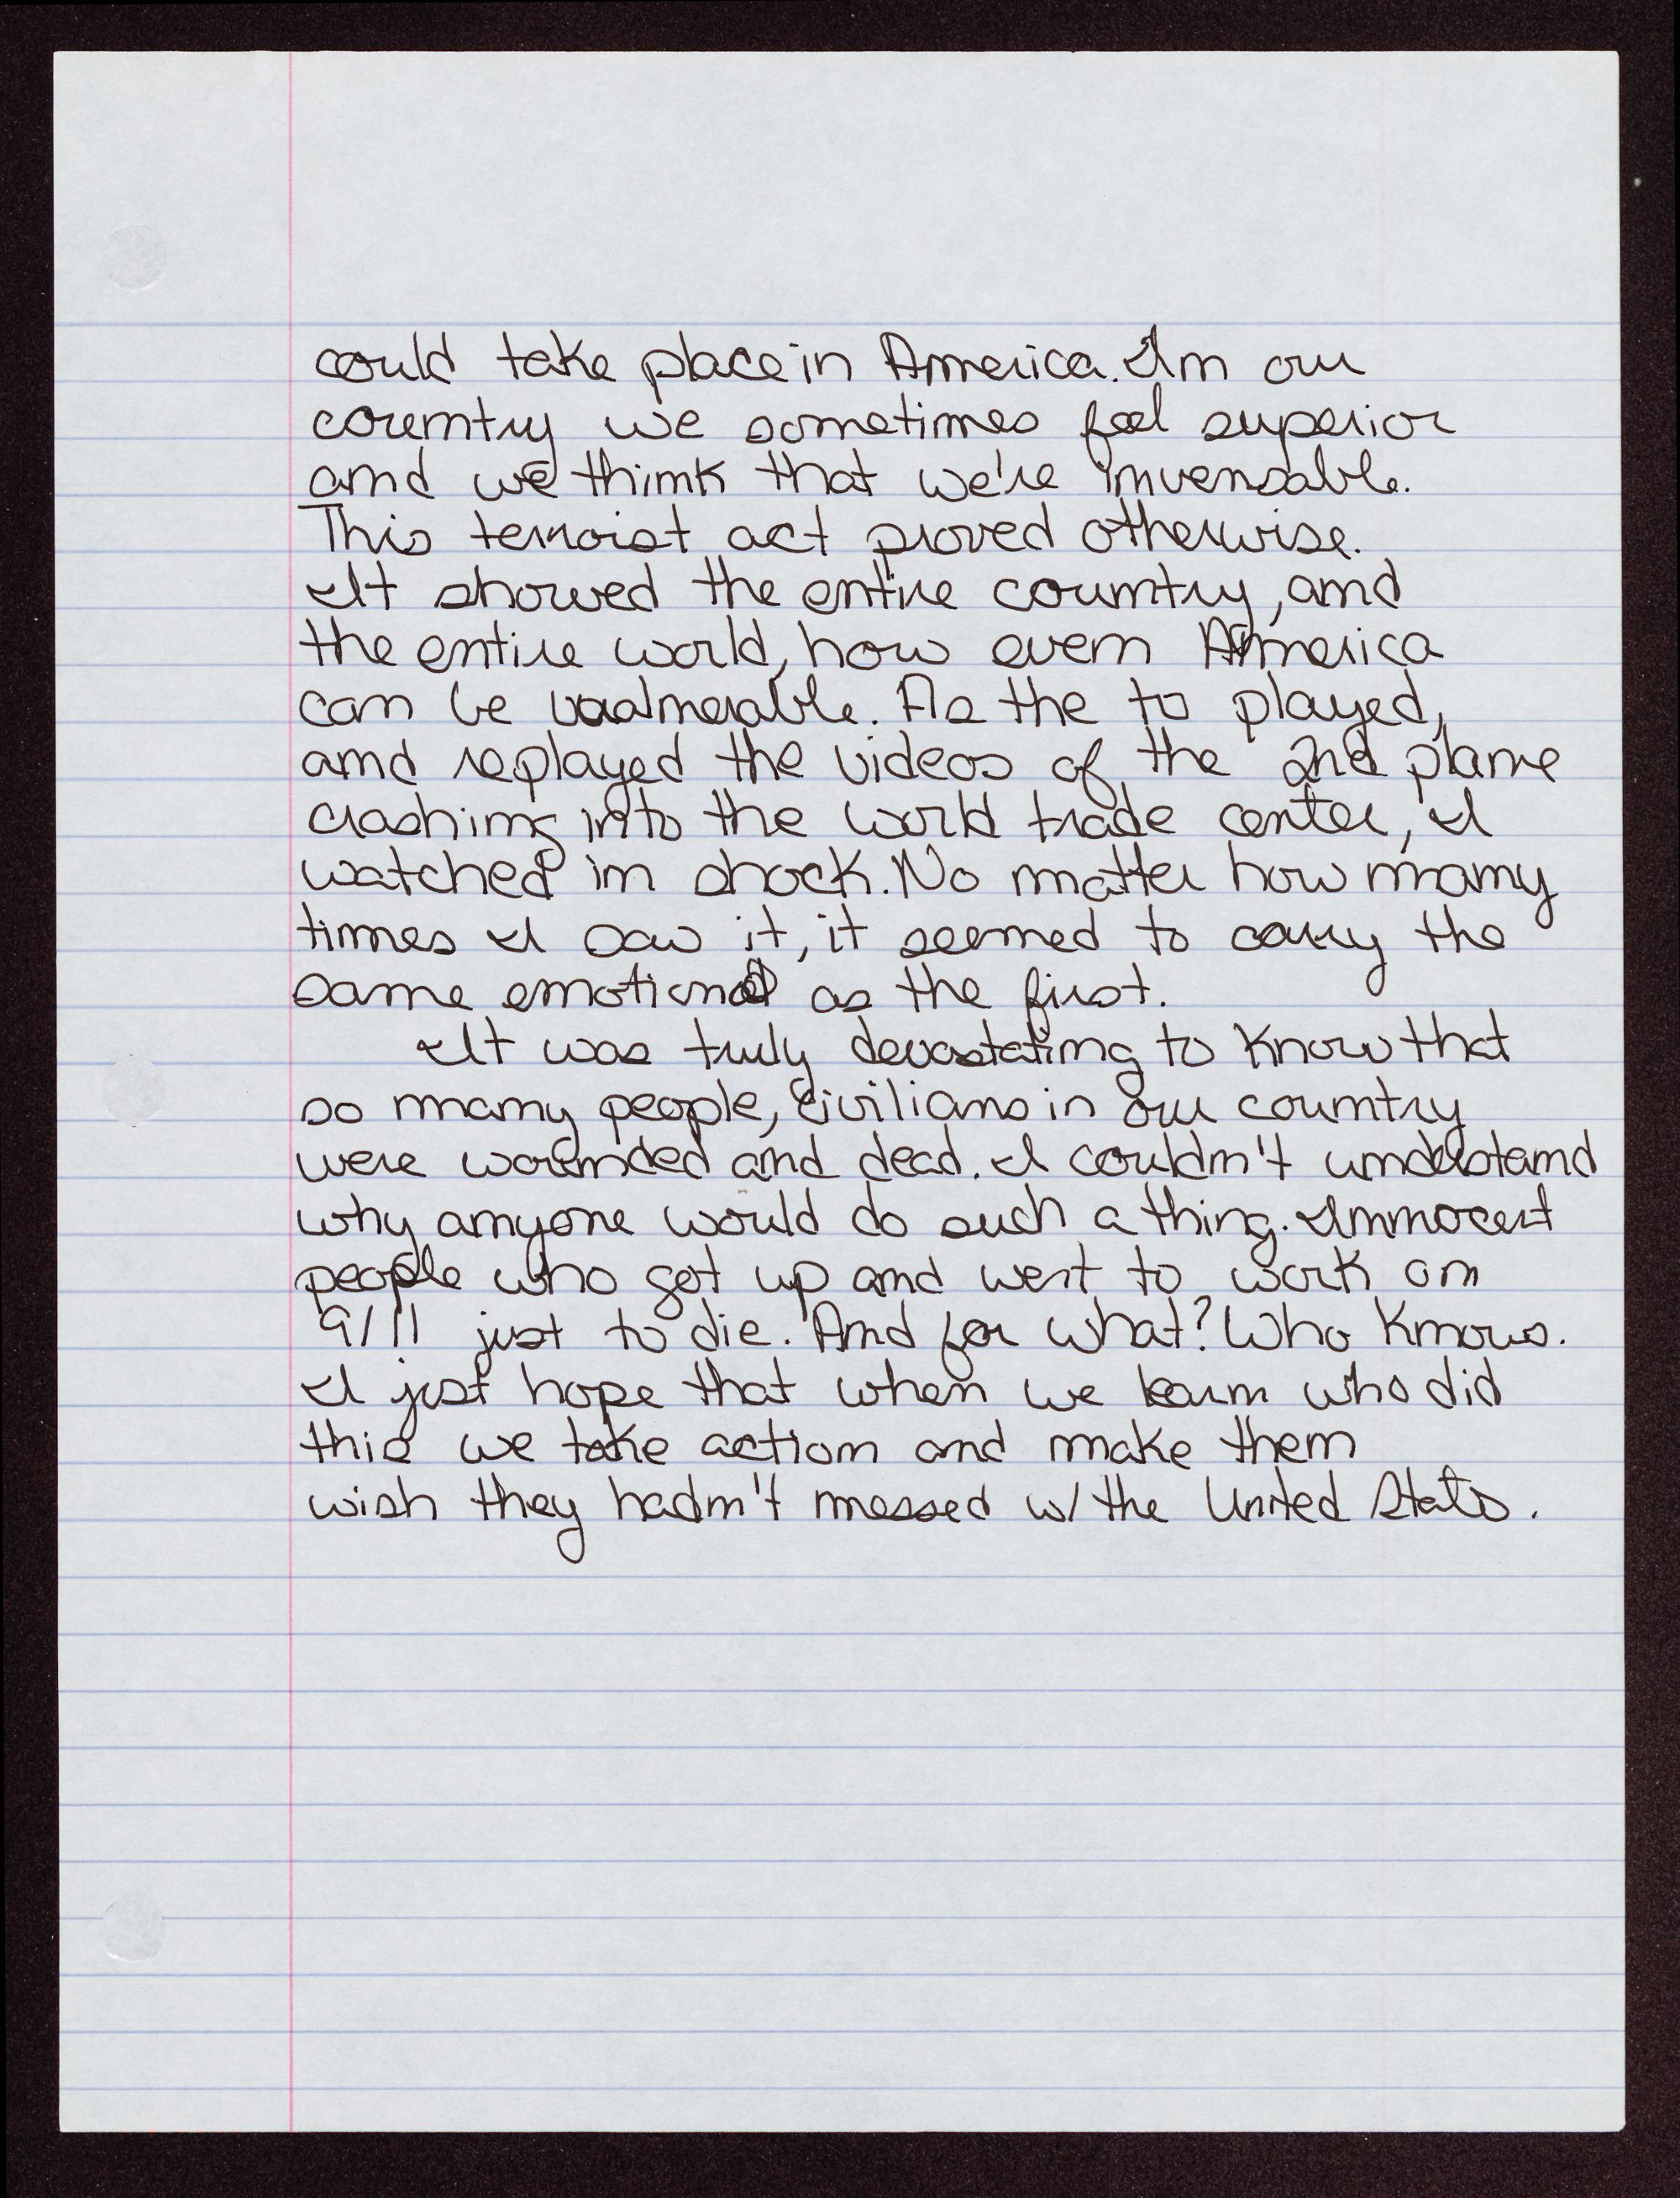 could take place in America. In our
country we sometimes feel superior
and we think that we're invensable.
This terroist act proved otherwise.
It showed the entire country, and
the entire world, how even America
can be vaulnerable. As the tv played,
and replayed the videos of the 2nd plane
crashing into the world trade center, I
watched in shock. No matter how many
times I saw it, it seemed to carry the
same emotional as the first.
It was truly devastating to know that
so many people, civilians in our country
were wounded and dead. I couldn't understand
why anyone would do such a thing. Innocent
people who got up and went to work on
9/11 just to die. And for what? Who knows.
I just hope that when we learn who did
this we take action and make them
wish they hadn't messed w/ the United States.